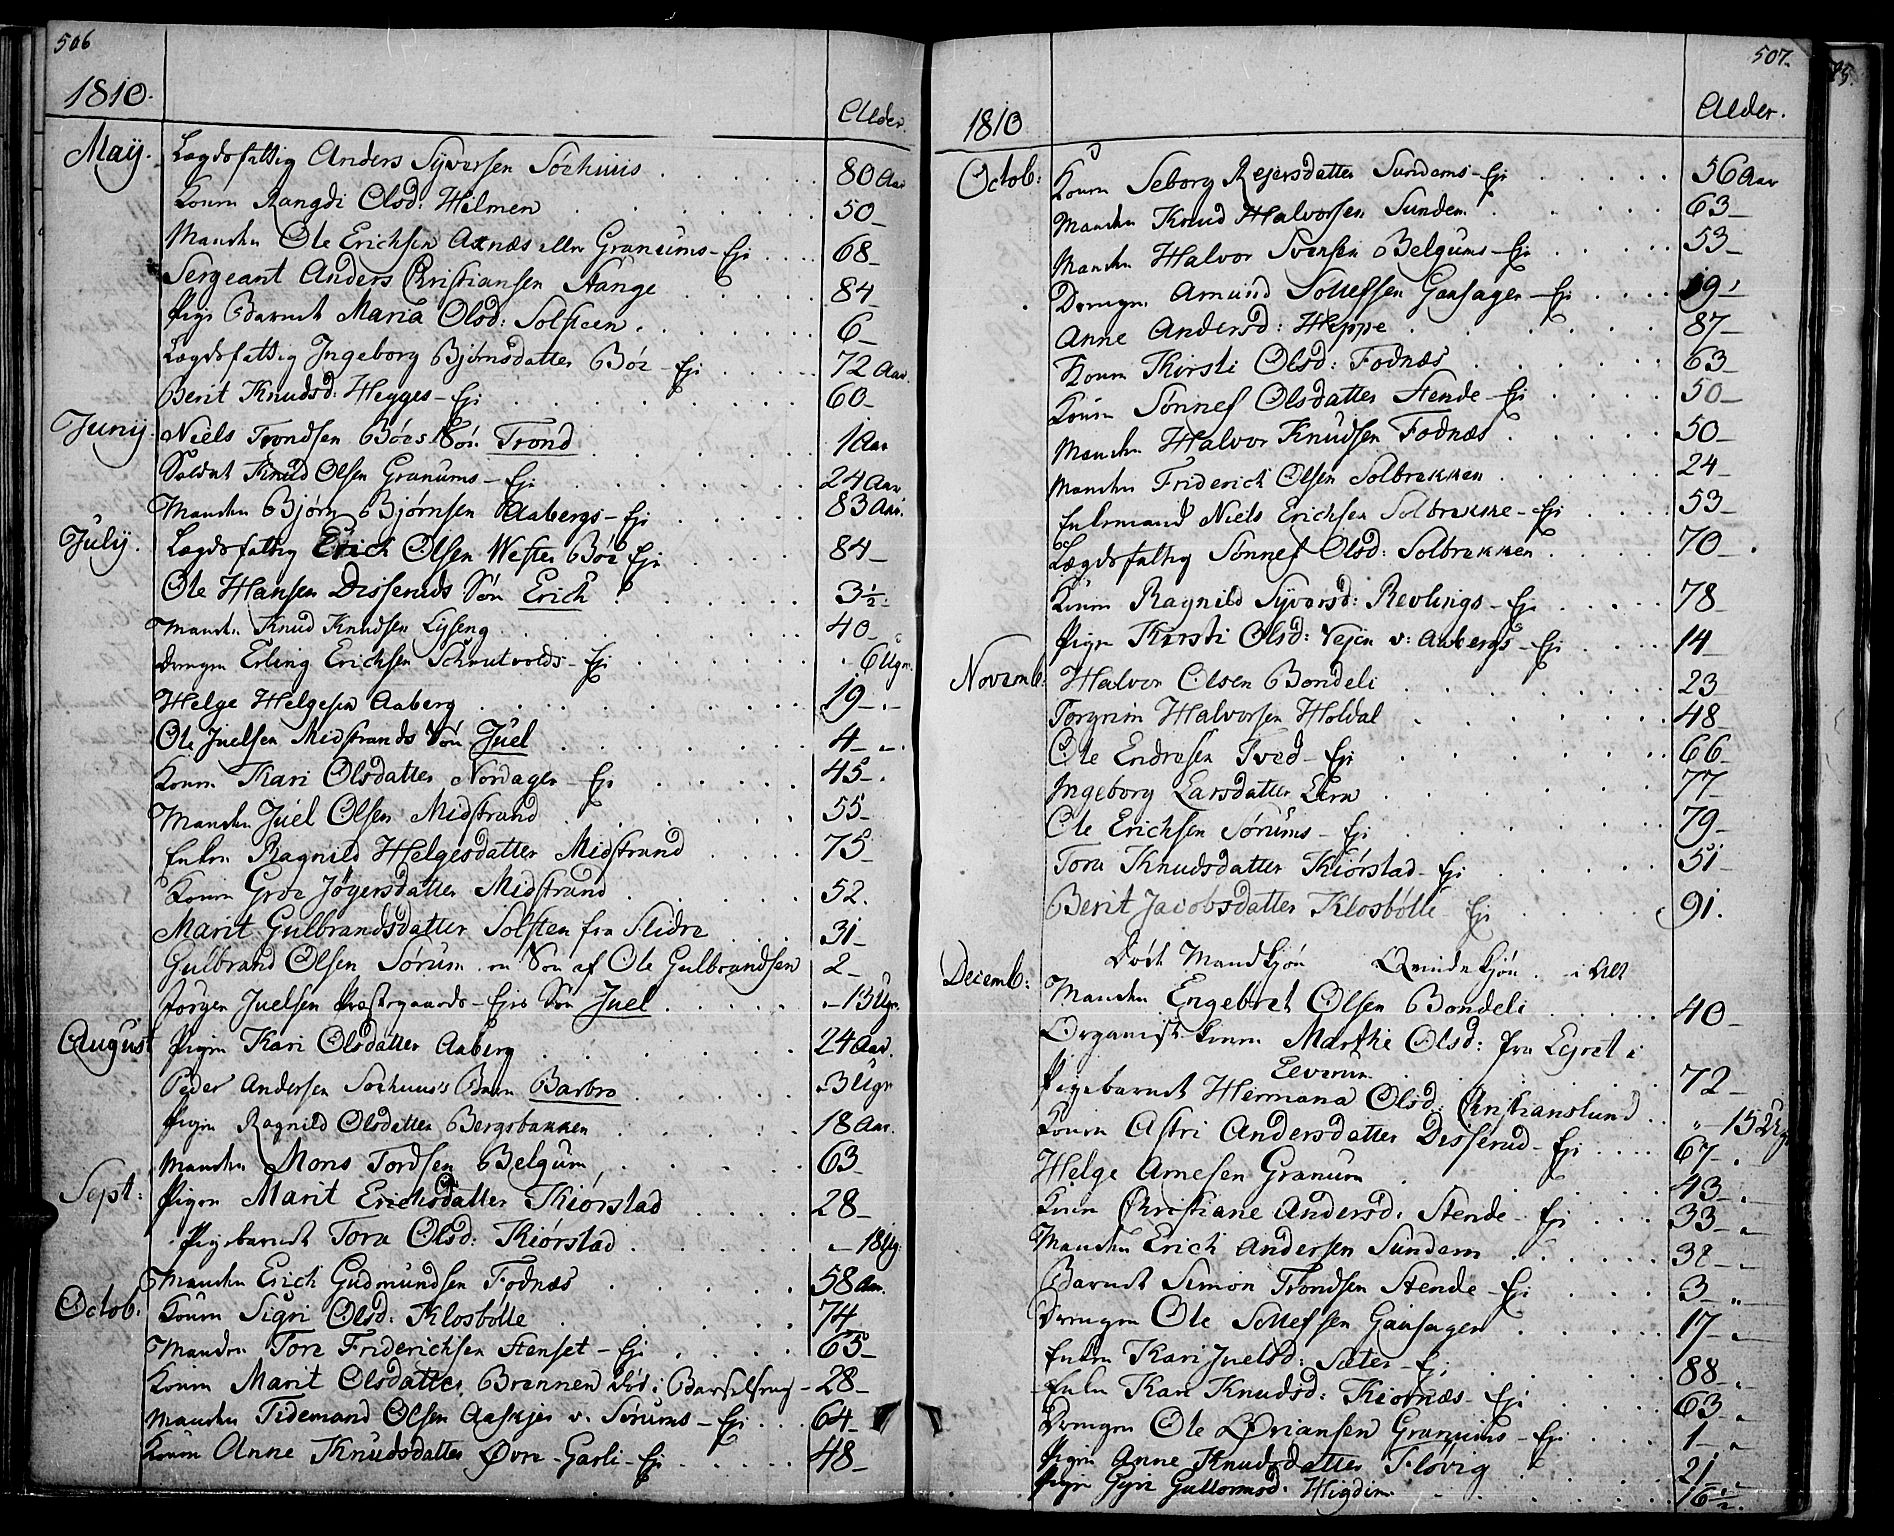 506
1810.
Alder.
Maij. Lægdsfattig Anders Syversen Sørhuus 80 Aar
Konen Rangdi Olsd: Hilmen 50–
Manden Ole Erichsen Axnæs eller Granums–Eje 68–
Sergeant Anders Christiansen Stange 84–
Pige Barnet Maria Olsd: Solsteen. 6–
Lægdsfattig Ingeborg Bjørnsdatter Bøe–Eje 72 Aar.
Berit Knudsd: Hegges–Eje 60–
Junij. Niels Trondsen Bøes Søn Trond 1 Aar
Soldat Knud Olsen Granums–Eje 24 Aar
Manden Bjørn Bjørnsen Aabergs–Eje 83 Aar.
Julij. Lægdsfattig Erich Olsen Westre Bøe Eje 84–
Ole Hansen Disseruds Søn Erich 3½–
Manden Knud Knudsen Lyseng 40–
Drengen Erling Erichsen Schrutvolds–Eje 6 Ugr.
Helge Helgesen Aaberg 19–
Ole Juelsen Midstrands Søn Juel 4–
Konen Kari Olsdatter Nordager–Eje 45–
Manden Juel Olsen Midstrand 55–
Enken Ragnild Helgesdatter Midstrand 75–
Konen Groe Jøgersdatter Midstrand 52.
Marit Gulbrandsdatter Solsten fra Slidre 31–
Gulbrand Olsen Sørum en Søn af Ole Gulbrandsen 2–
Jørgen Juelsen Præstegaards–Eies Søn Juel 13 Ugr.
August Pigen Kari Olsdatter Aaberg 24 Aar.
Peder Andersen Sørhuus's Barn Barbro 3 Ugr
Pigen Ragnild Olsdatter Bergsbakken 18 Aar.
Manden Mons Tordsen Belgum 63
Sept: Pigen Marit Erichsdatter Kiørstad 28–
Pigebarnet Tora Olsd: Kiørstad 18 Ug:
Manden Erich Gudmundsen Fodnæs 58 Aar.
Octob: Konen Sigri Olsd: Klosbølle 74
Manden Tore Friderichsen Stenset–Eje 65–
Konen Marit Olsdatter Brennen død i Barselseng 28–
Manden Tidemand Olsen Aaskjer v. Sørums–Eje 64–
Konen Anne Knudsdatter Øvre-Garli–Eje 48–
507.
1810
Alder.
Octob: Konen Seborg Rejersdatter Sundems–Eje 56 Aar
Manden Knud Halvorsen Sundem 63–
Manden Halvor Svensen Belgums–Eje 53–
Drengen Amund Sollefsen Gausager–Eje 19
Anne Andersd: Hippe 87–
Konen Kirsti Olsd: Fodnæs 63–
Konen Sønnef Olsdatter Stende–Eje 50–
Manden Halvor Knudsen Fodnæs 50–
Manden Friderich Olsen Solbrekken 24–
Enkemand Niels Erichsen Solbrekke–Eje 53–
Lægdsfattig Sønnef Olsd: Solbrekken 70–
Konen Ragnild Syversd: Revlings–Eje 78–
Pigen Kirsti Olsd: Vejen v: Aabergs–Eje 14–
Novemb: Halvor Olsen Bondeli 23
Torgrim Halvorsen Holdal 48–
Ole Endresen Tved–Eje 66–
Ingeborg Larsdatter Lien 77
Ole Erichsen Sørums–Eje 79–
Tora Knudsdatter Kiørstad–Eje 51–
Berit Jacobsdatter Klosbølle–Eje 91.
Døde Mandkjøn Qvindekjøn i Alt
Decemb: Manden Engebret Olsen Bondeli 40–
Organist-Konen Marthe Olsd: fra Lejret i
Elverum 72–
Pigebarnet Hermana Olsd: Christianslund 15 Ugr
Konen Astri Andersdatter Disserud–Eje 67–
Helge Arnesen Granum 43–
Konen Christiane Andersd: Stende–Eje 33–
Manden Erich Andersen Sundem 38–
Barnet Simon Trondsen Stende–Eje 3–
Drengen Ole Sollefsen Gausager 17–
Enken Kari Juelsd: Sæter–Ej 88–
Enken Kari Knudsd: Kiørnæs–Eje 63
Drengen Ole Ørjansen Granums–Eje 1–
Pigen Anne Knudsdatter Fløvig 21–
Pigen Gyri Guttormsd: Higdem 16½–